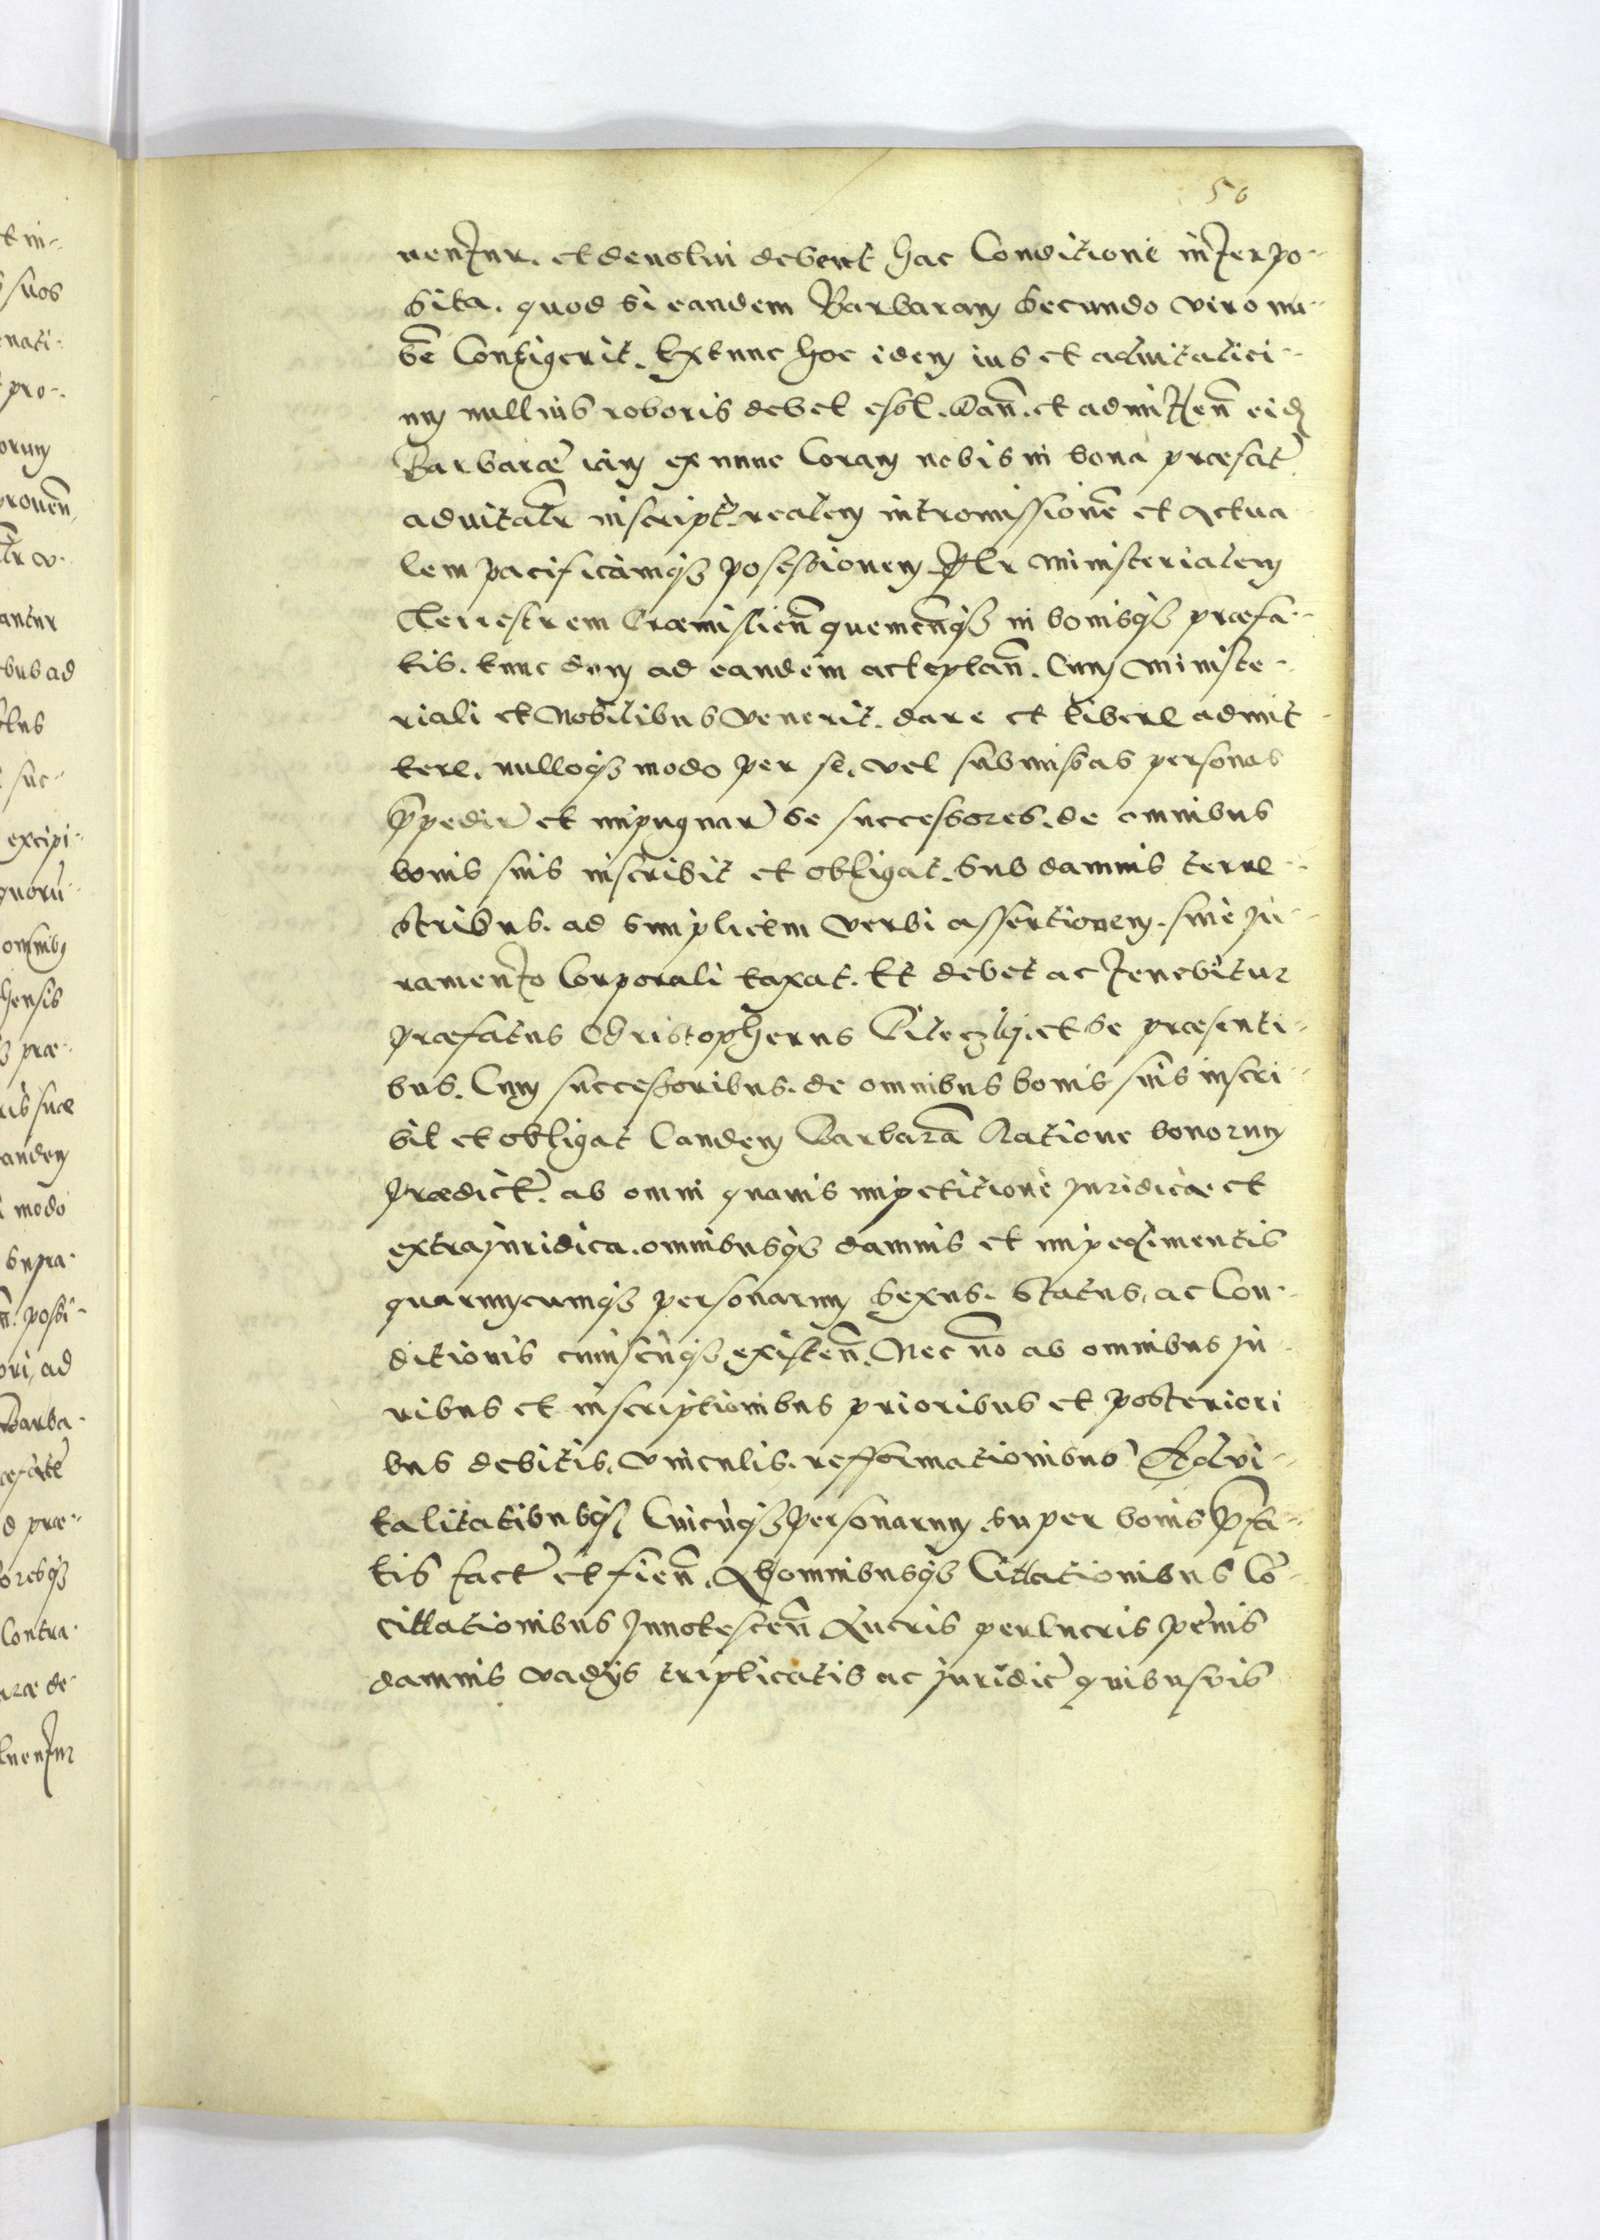 56
uentur. et deuolui debent hac Conditione interpo-
sita. quod si eandem Barbaram Secundo viro nu-
bē Contigerit. Extunc hoc idem ius et aduitalici-
um nullius roboris debet esse. Dan̄. et admitten̄ eidē
Barbaræ iam ex nunc Coram nobis in bona præfat
aduitalr inscript. realem intromissionē et Actua
lem pacificamqȝ possessionem. Per Ministerialem
Terrestrem Præmislien̄ quemcūqȝ in bonisqȝ præfa-
tis. tunc dum ad eandem acceptan̄. Cum Ministe-
riali et Nobilibus Venerit. dare et libere admit
tere. nulloqȝ modo per se. vel submissas personas
p̄pedir et impugnar Se successores. de omnibus
bonis suis inscribit et obligat. Sub damnis terre-
stribus. ad simplicem verbi assertionem. sine Ju-
ramento Corporali taxat. Et debet ac tenebitur
præfatus Christopherus et Se præsenti-
bus. Cum successoribus. de omnibus bonis suis inscri-
bit et obligat Eandem Barbarā Ratione bonorum
prædict. ab omni quauis impetitione Juridica et
extrajuridica. omnibusqȝ damnis et impedimentis
quarumcumqȝ personarum Sexus. Status, ac Con-
ditionis cuiuscūqȝ existen̄. Nec nō ab omnibus Ju-
ribus et inscriptionibus prioribus et posteriori
bus debitis. vinculis. refformationibus Advi-
talitatibusqȝ Cuicūqȝ personarum. super bonis p̄fa-
tis fact et fien̄. Ab omnibusqȝ Cittationibus Cō-
cittationibus Innotescen̄ Lucris perlucris pænis
damnis vadÿs triplicatis ac juridic quibusvis